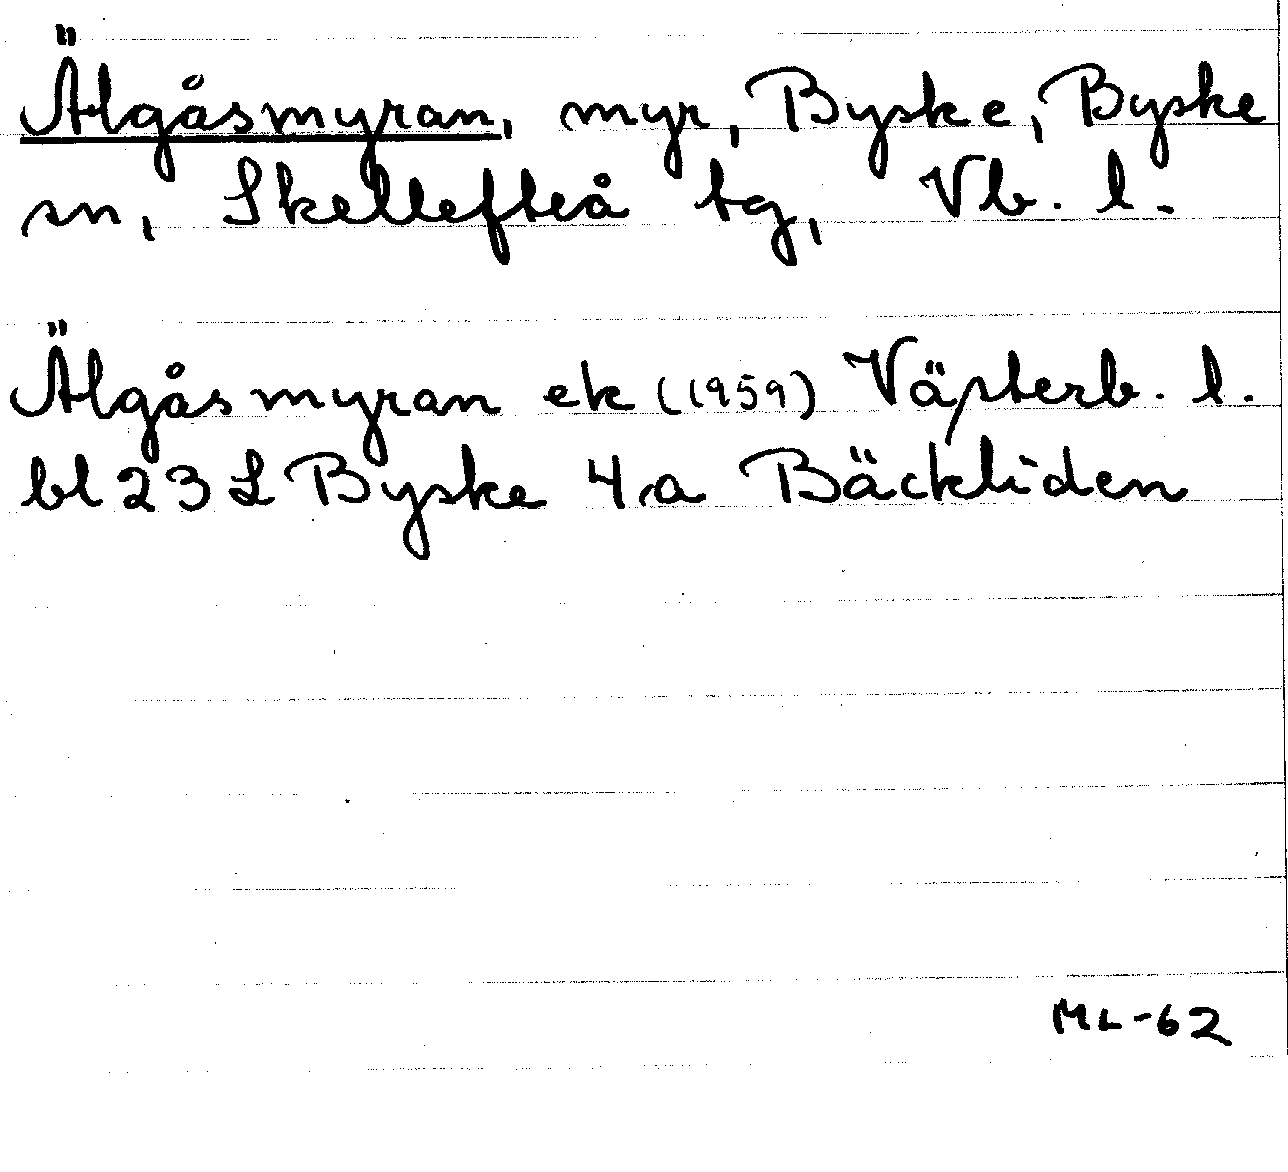 Älgåsmyran, myr, Byske, Byske
sn, Skellefteå tg, Vb. l.
Älgåsmyran ek (1959) Västerb. l.
bl 23 L Byske 4 a Bäckliden
ML-62